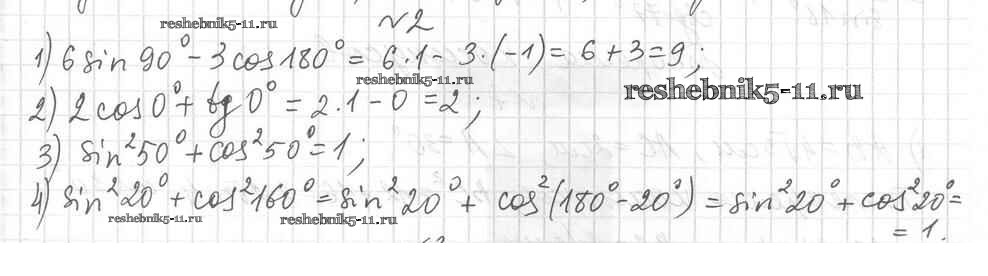 reshebnik5-11.ru
№2
1) 6 sin 90° - 3 cos 180° = 6·1 - 3·(-1) = 6 + 3 = 9;
reshebnik5-11.ru
reshebnik5-11.ru
2) 2 cos 0° + tg 0° = 2·1 - 0 = 2;
3) sin²50° + cos²50° = 1;
4) sin²20° + cos²160° = sin²20° + cos²(180° - 20°) = sin²20° + cos²20° =
reshebnik5-11.ru
reshebnik5-11.ru
= 1.